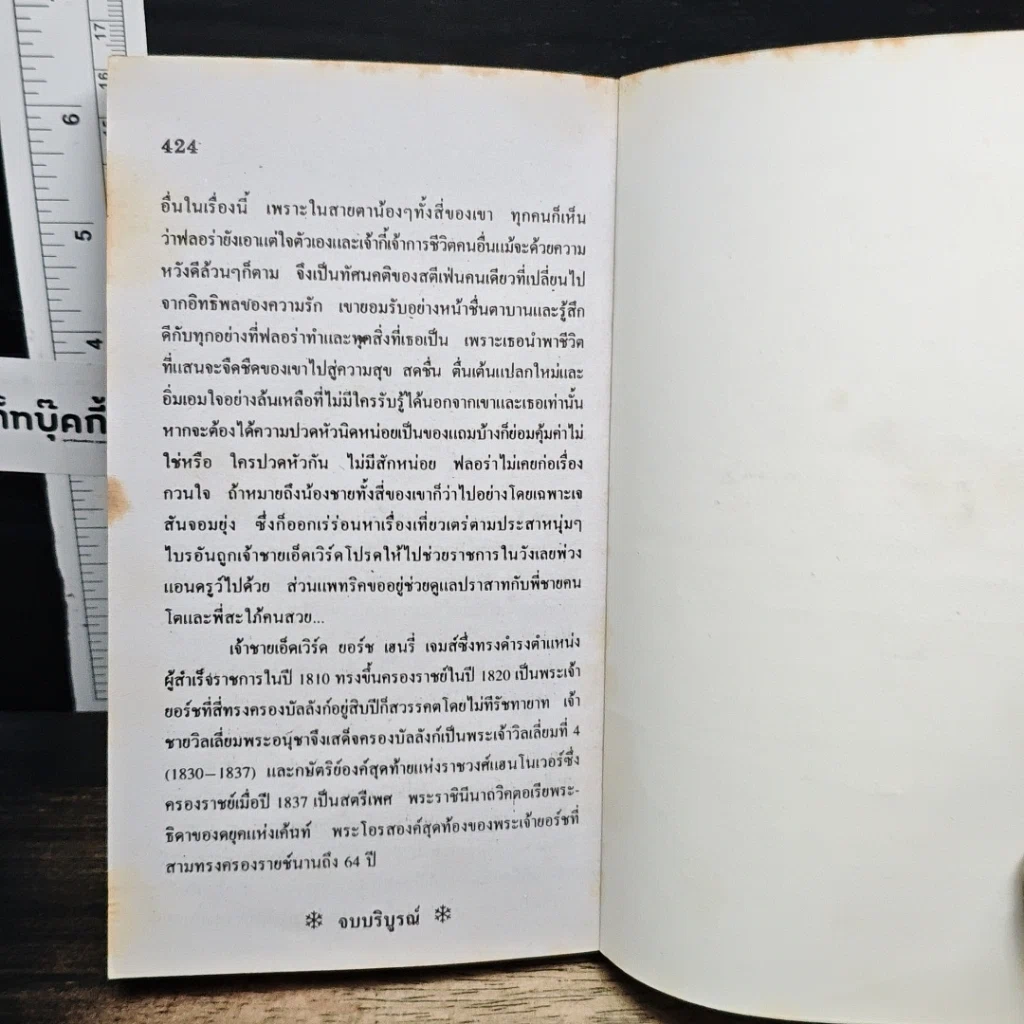 17
16
6
5
4
ก็ทบุ๊คกี้
424
อื่นในเรื่องนี้ เพราะในสายตาน้องๆทั้งสี่ของเขา ทุกคนก็เห็น
ว่าฟลอร่ายังเอาแต่ใจตัวเองและเจ้ากี้เจ้าการชีวิตคนอื่นแม้จะด้วยความ
หวังดีล้วนๆก็ตาม จึงเป็นทัศนคติของสตีเฟ่นคนเดียวที่เปลี่ยนไป
จากอิทธิพลของความรัก เขายอมรับอย่างหน้าชื่นตาบานและรู้สึก
ดีกับทุกอย่างที่ฟลอร่าทำและทุกสิ่งที่เธอเป็น เพราะเธอนำพาชีวิต
ที่แสนจะจืดชืดของเขาไปสู่ความสุข สดชื่น ตื่นเต้นแปลกใหม่และ
อิ่มเอมใจอย่างล้นเหลือที่ไม่มีใครรับรู้ได้นอกจากเขาและเธอเท่านั้น
หากจะต้องได้ความปวดหัวนิดหน่อยเป็นของแถมบ้างก็ย่อมคุ้มค่าไม่
ใช่หรือ ใครปวดหัวกัน ไม่มีสักหน่อย ฟลอร่าไม่เคยก่อเรื่อง
กวนใจ ถ้าหมายถึงน้องชายทั้งสี่ของเขาก็ว่าไปอย่างโดยเฉพาะเจ
สันจอมยุ่ง ซึ่งก็ออกเร่ร่อนหาเรื่องเที่ยวเตร่ตามประสาหนุ่มๆ
ไบรอันถูกเจ้าชายเอ็ดเวิร์ดโปรดให้ไปช่วยราชการในวังเลยพ่วง
แอนดรูว์ไปด้วย ส่วนแพทริคขออยู่ช่วยดูแลปราสาทกับพี่ชายคน
โตและพี่สะใภ้คนสวย...
เจ้าชายเอ็ดเวิร์ด ยอร์ช เฮนรี่ เจมส์ซึ่งทรงดำรงตำแหน่ง
ผู้สำเร็จราชการในปี 1810 ทรงขึ้นครองราชย์ในปี 1820 เป็นพระเจ้า
ยอร์ชที่สี่ทรงครองบัลลังก์อยู่สิบปีก็สวรรคตโดยไม่มีรัชทายาท เจ้า
ชายวิลเลี่ยมพระอนุชาจึงเสด็จครองบัลลังก์เป็นพระเจ้าวิลเลี่ยมที่ 4
(1830–1837) และกษัตริย์องค์สุดท้ายแห่งราชวงศ์แฮนโนเวอร์ซึ่ง
ครองราชย์เมื่อปี 1837 เป็นสตรีเพศ พระราชินีนาถวิคตอเรียพระ-
ธิดาของดยุคแห่งเค้นท์ พระโอรสองค์สุดท้องของพระเจ้ายอร์ชที่
สามทรงครองรายช์นานถึง 64 ปี
❄ จบบริบูรณ์ ❄